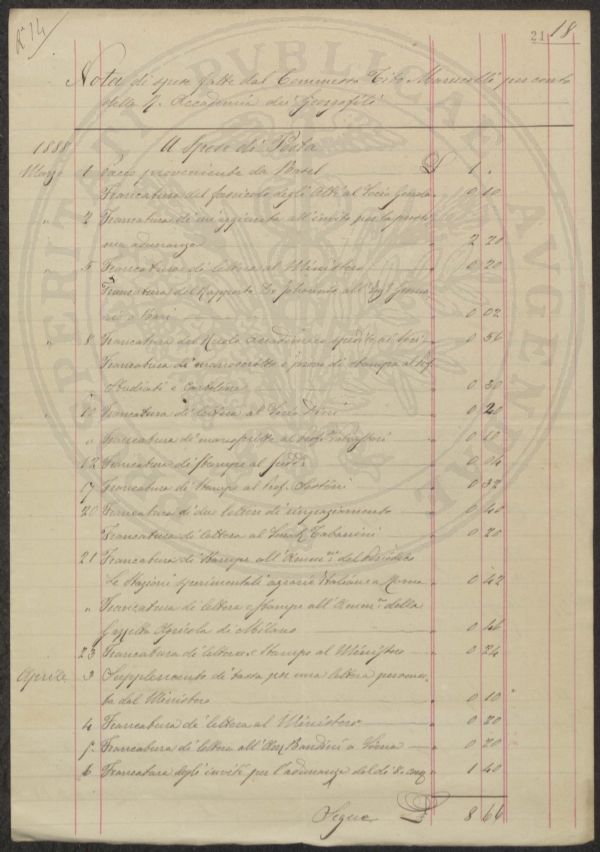 N° 14
21 18
Nota di spese fatte dal Commesso Tito Marucelli per conto
della R. Accademia dei Georgofili
PROSPERITATI PUBLICAE AUGENDAE
1888 A Spese di Posta
Marzo 1 Pacco proveniente da £ 1 "
Francatura del fascicolo degli Atti al Socio 0 10
" 2 Francatura di un'aggiunta all'invito per la pross
ma adunanza 2 20
" 5 Francatura di lettera al Ministero 0 20
Francatura del Rapporto De Johannis all'
0 02
" 8 Francatura del Ruolo Accademico spedito ai Soci 0 56
Francatura di manoscritto e prove di stampa al Prof.
e Cartolina 0 30
" 10 Francatura di lettera al Socio 0 20
" Francatura di manoscritto al Prof. 0 10
12 Francatura di stampe al 0 04
17 Francatura di stampe al Prof. Sestini 0 32
20 Francatura di due lettere di ringraziamento 0 40
Francatura di lettera al 0 20
21 Francatura di stampe all'Ammne del periodico
Le Stazioni sperimentali agrarie Italiane a Roma 0 42
" Francatura di lettera e stampe all'Ammne della
Gazzetta Agricola di Milano 0 46
23 Francatura di lettera e stampe al Ministero 0 24
Aprile 3 Supplemento di tassa per una lettera pervenu-
ta dal Ministero 0 10
4 Francatura di lettera al Ministero 0 20
5 Francatura di lettera all'Onn. Bandini a Siena 0 20
6 Francatura degli inviti per l'adunanza del dì 8 1 40
Segue £ 8 66